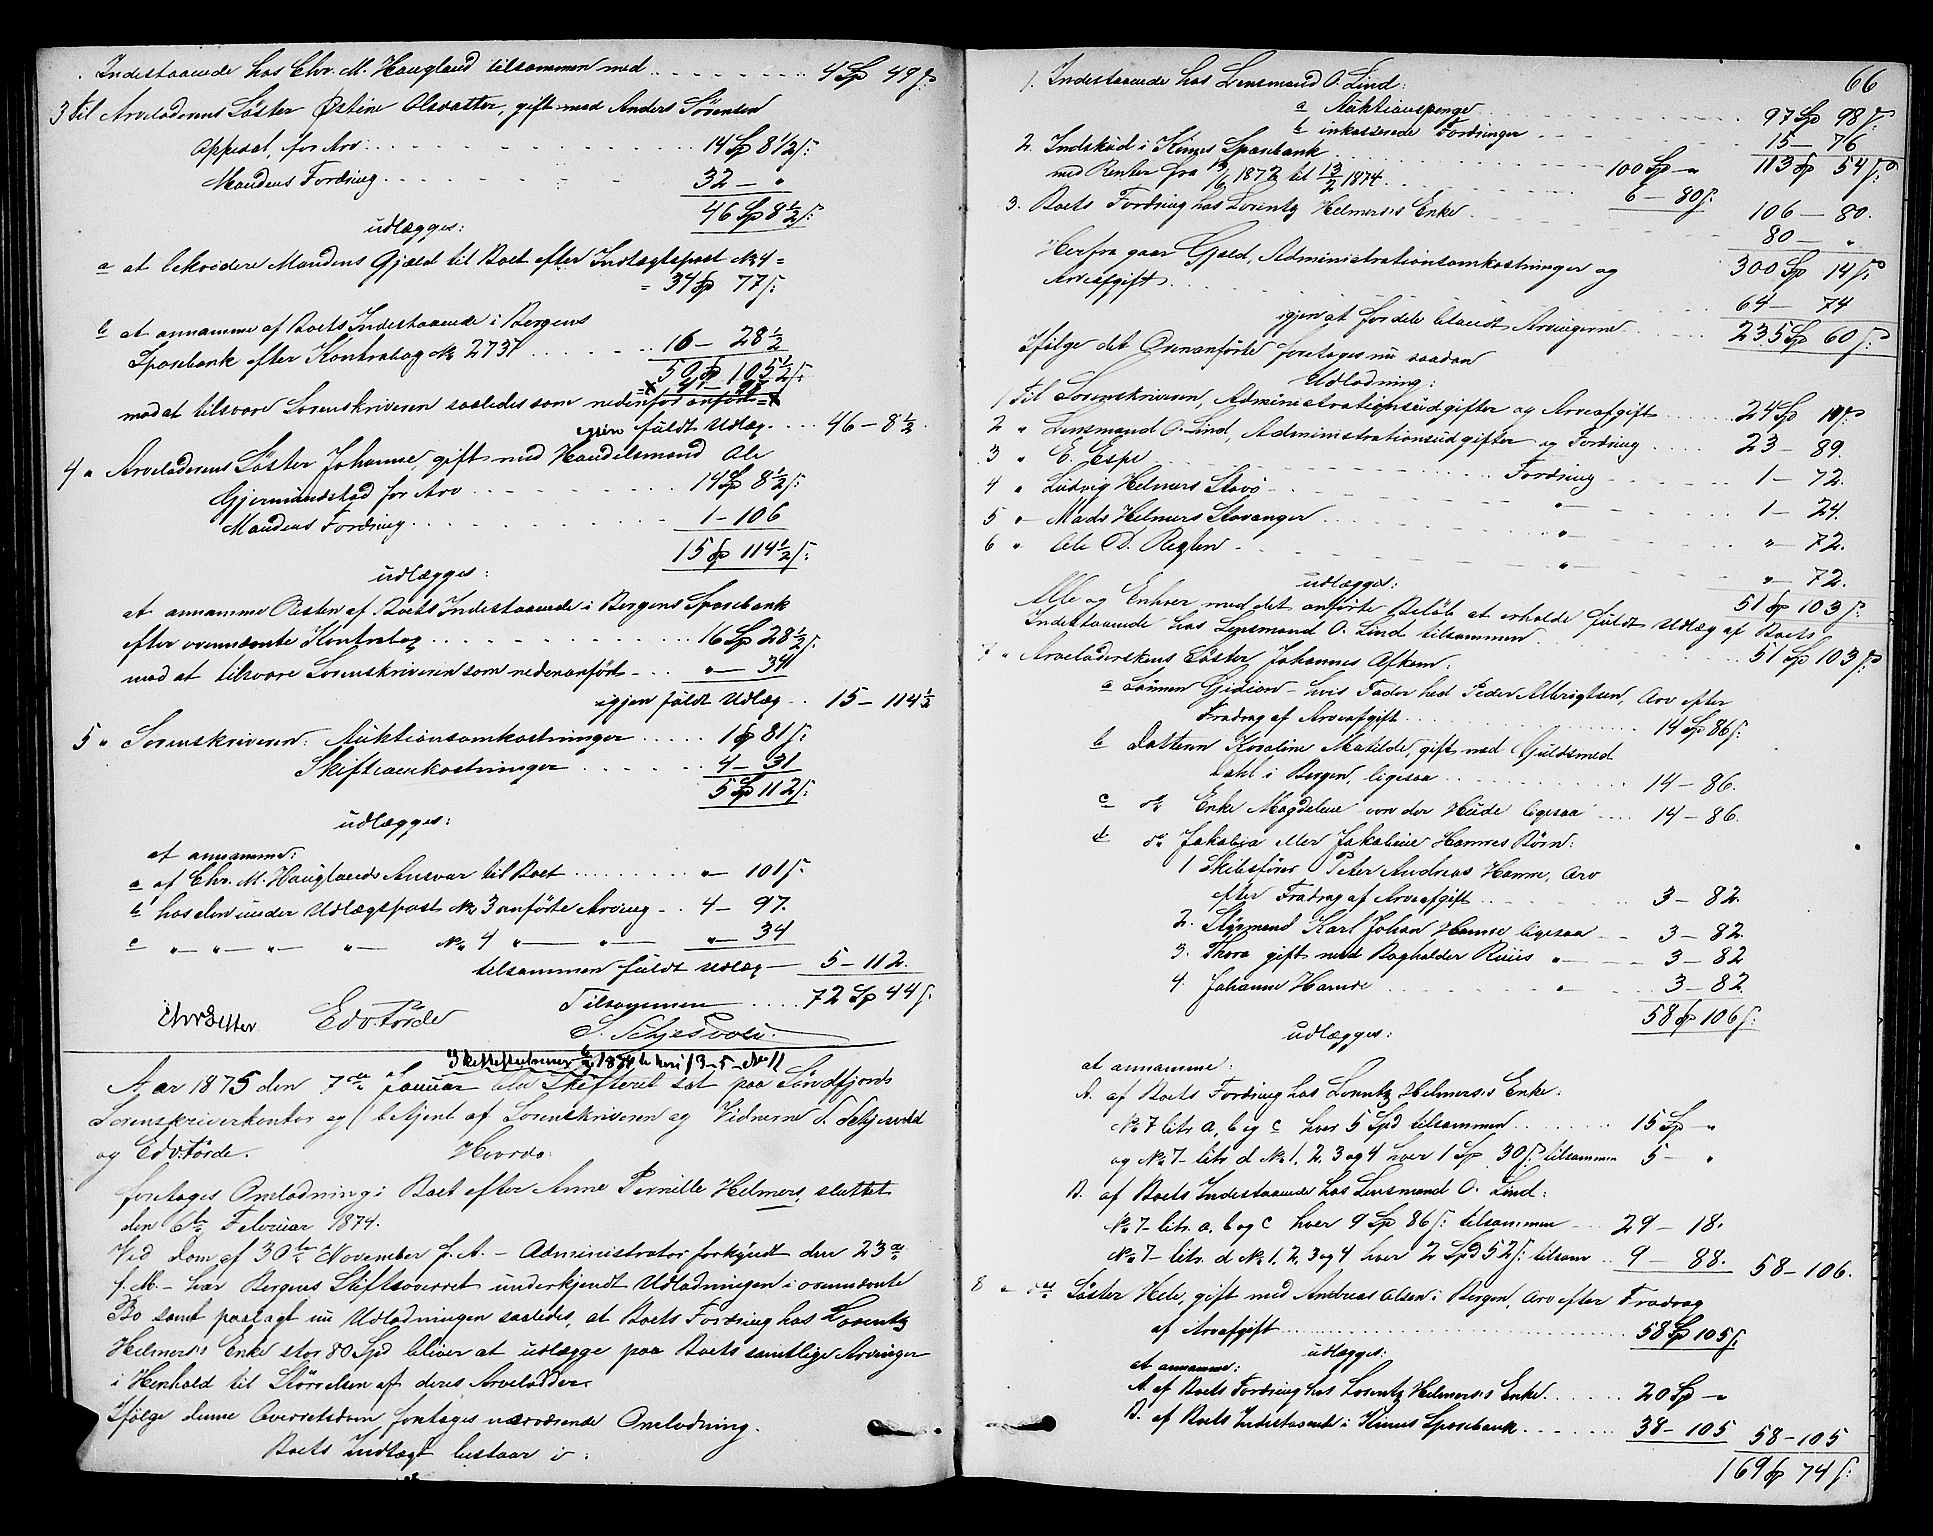 Indestaaende hos Chr. M. Haugland tilsammen med . . . . 4 Sp 49 s:
3 til Arveladerens Søster Østine Olsdatter, gift med Anders Sørensen
Appesat, for Arv . . . . 14 Sp 8 1/2 s:
Mandens Fordring . . . . 32 — "
46 Sp 8 1/2 s:
udlægges:
a at likvidere Mandens Gjæld til Boet efter Indtægtspost No 4 =
= 34 Sp 77 s:
b at annamme af Boets Indestaaende i Bergens
Sparebank efter Kontrabog No 2737 . . . . 16 — 28 1/2
50 Sp 105 1/2 s:
4 — 97
mod at tilsvare Sorenskriveren saaledes som nedenfor anført
igjen fuldt Udlæg . . . . 46 — 8 1/2
4 " Arveladerens Søster Johanne, gift med Handelsmand Ole
Gjermundstad for Arv . . . . 14 Sp 8 1/2 s:
Mandens Fordring . . . . 1 — 106
15 Sp 114 1/2 s:
udlægges:
at annamme Resten af Boets Indestaaende i Bergens Sparebank
efter ovennævnte Kontrabog . . . . 16 Sp 28 1/2 s:
mod at tilsvare Sorenskriveren som nedenanført . . " — 34
igjen fuldt Udlæg . . 15 — 114 1/2
5 " Sorenskriveren: Auktionsomkostninger . . . . 1 Sp 81 s:
Skifteomkostninger . . . . 4 — 31
5 Sp 112 s:
udlægges:
at annamme:
a af Chr. M. Hauglands Ansvar til Boet . . . . " — 101 s:
b hos den under Udlægspost No 3 anførte Arving . . 4 — 97.
c " — " — " — " — No 4 " — " — " — 34
tilsammen fuldt Udlæg — 5 — 112.
Tilsammen . . . . 72 Sp 44 s:
Edv. Førde
S. Schjesvold
Aar 1875 den 7de Januar blev Skifteret sat paa Søndfjords
Sorenskriverkontor og betjent af Sorenskriveren og Vidnerne S. Schjesvold
og Edv. Førde.
Hvorda:
foretages Omlodning i Boet efter Anne Pernille Helmers, sluttet
den 6te Februar 1874.
Ved Dom af 30te November f. A. — Administrator forkyndt den 23de
f. M. — har Bergens Stiftsoverret underkjendt Udlodningen i ovennævnte
Bo samt paalagt nu Udlodningen saaledes, at Boets Fordring hos Lorentz
Helmers's Enke stor 80 Spd bliver at udlægge paa Boets samtlige Arvinger
i Henhold til Størrelsen af deres Arvelodder.
Ifølge denne Overretsdom foretages nærværende Omlodning.
Boets Indtægt bestaar i:
66
1. Indestaaende hos Lensmand O. Lind:
a Auktionspenge . . . . 97 Sp 98 s:
b inkasserede Fordringer . . . . 15 — 76
113 Sp 54 s:
2. Indskud i Kinns Sparebank . . . . 100 Sp — "
med Renter fra 13/6 1872 til 13/2 1874 . . . . 6 — 80 s:
106 — 80.
3. Boets Fordring hos Lorentz Helmers's Enke . . . . 80 — "
300 Sp 14 s:
Herfra gaar Gjæld, Administrationsomkostninger og
Arveafgift . . . . 64 — 74
igjen at fordele blandt Arvingerne . . . . 235 Sp 60 s:
Ifølge det Ovenanførte foretages nu saadan
Udlodning:
1. Til Sorenskriveren, Administrationsudgifter og Arveafgift . . . . 24 Sp 10 s:
2 " Lensmand O. Lind, Administrationsudgifter og Fordring . . . . 23 — 89.
3 " E. Espe . . . . Fordring . . . . 1 — 72.
4 " Ludvig Helmers Stavø . . . . " — 1 — 24.
5 " Mads Helmers Stavanger . . . . " — " — 72.
6 " Ole D. . . . . " — " — 72.
51 Sp 103 s:
udlægges:
Alle og Enhver med det anførte Beløb at erholde fuldt Udlæg af Boets
Indestaaende hos Lensmand O. Lind tilsammen . . . . 51 Sp 103 s:
7 " Arveladerskens Søster Johannes Afkom:
a Sønnen Gidion — hvis Fader hed Peder Albrigtsen, Arv efter
Fradrag af Arveafgift . . . . 14 Sp 86 s:
b Datteren Karoline Matilde, gift med Guldsmed
Dahl i Bergen, ligesaa . . . . 14 — 86.
c do Enke Magdelene von der Hude ligesaa . . . . 14 — 86.
d do Jakobea eller Jakobine Hamres Børn:
1 Skibsfører Peter Andreas Hamre, Arv
efter Fradrag af Arveafgift . . . . 3 — 82.
2. Styrmand Karl Johan Hamre ligesaa . . 3 — 82.
3. Thora gift med Bogholder Riiis " — 3 — 82
4. Johanne Hamre . . . . " 3 — 82
58 Sp 106 s:
udlægges:
at annamme:
A. af Boets Fordring hos Lorentz Helmers's Enke:
No 7 litr. a, b og c hver 5 Spd tilsammen . . . . 15 Sp — "
og No 7 — litr. d No 1, 2, 3 og 4 hver 1 Sp 30 s: tilsammen 5 — "
B. af Boets Indestaaende hos Lensmand O. Lind:
No 7 — litr. a, b og c hver 9 Sp 86 s: tilsammen . . 29 — 18.
No 7 — litr. d No 1, 2, 3 og 4 hver 2 Spd 52 s: tilsam . . 9 — 88. 58 — 106.
8 " do Søster Hele, gift med Andreas Olsen i Bergen, Arv efter Fradrag
af Arveafgift . . . . 58 Sp 105 s:
udlægges:
at annamme:
A. af Boets Fordring hos Lorentz Helmers's Enke . . . . 20 Sp — "
B. af Boets Indestaaende i Kinns Sparebank . . . . 38 — 105 58 — 105
169 Sp 74 s: